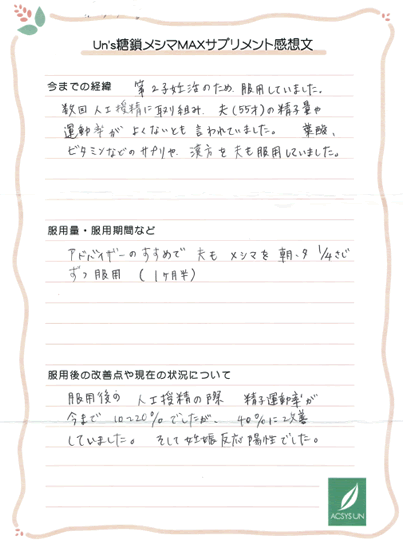 Un's糖鎖メシマMAXサプリメント感想文
今までの経緯　第2子妊活のため服用していました。
数回人工授精に取り組み、夫(55才)の精子量や
運動率がよくないとも言われていました。　葉酸、
ビタミンなどのサプリや、漢方を夫も服用していました。
服用量・服用期間など
アドバイザーのすすめで夫もメシマを朝、夕 1/4さじ
ずつ服用　(1ヶ月半)
服用後の改善点や現在の状況について
服用後の人工授精の際　精子運動率が
今まで 10〜20%でしたが、40%に改善
していました。　そして妊娠反応陽性でした。
ACSYS UN